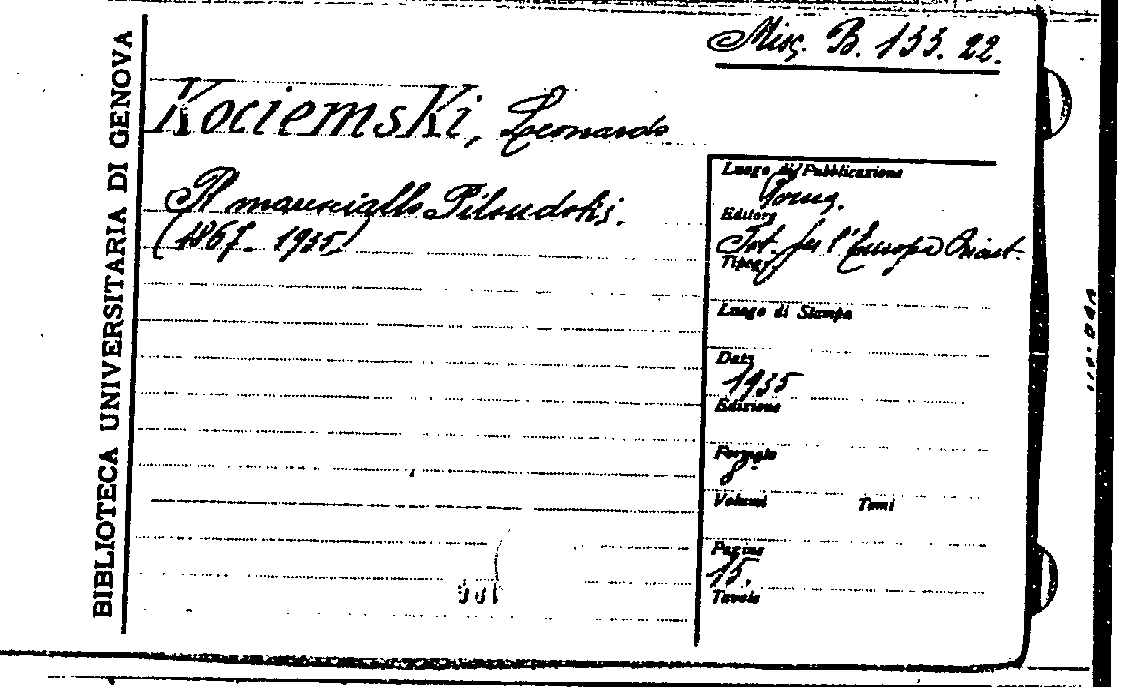 Misc. B. 133. 22.
BIBLIOTECA UNIVERSITARIA DI GENOVA
Kociemski, Leonardo
Il maresciallo Pilsudski.
(1867-1935)
Luogo di Pubblicazione
Roma.
Editore
Ist. per l'Europa Orient.
Tipogr.
Luogo di Stampa
Data
1935
Edizione
Formato
8°
Volumi Tomi
Pagine
15.
Tavole